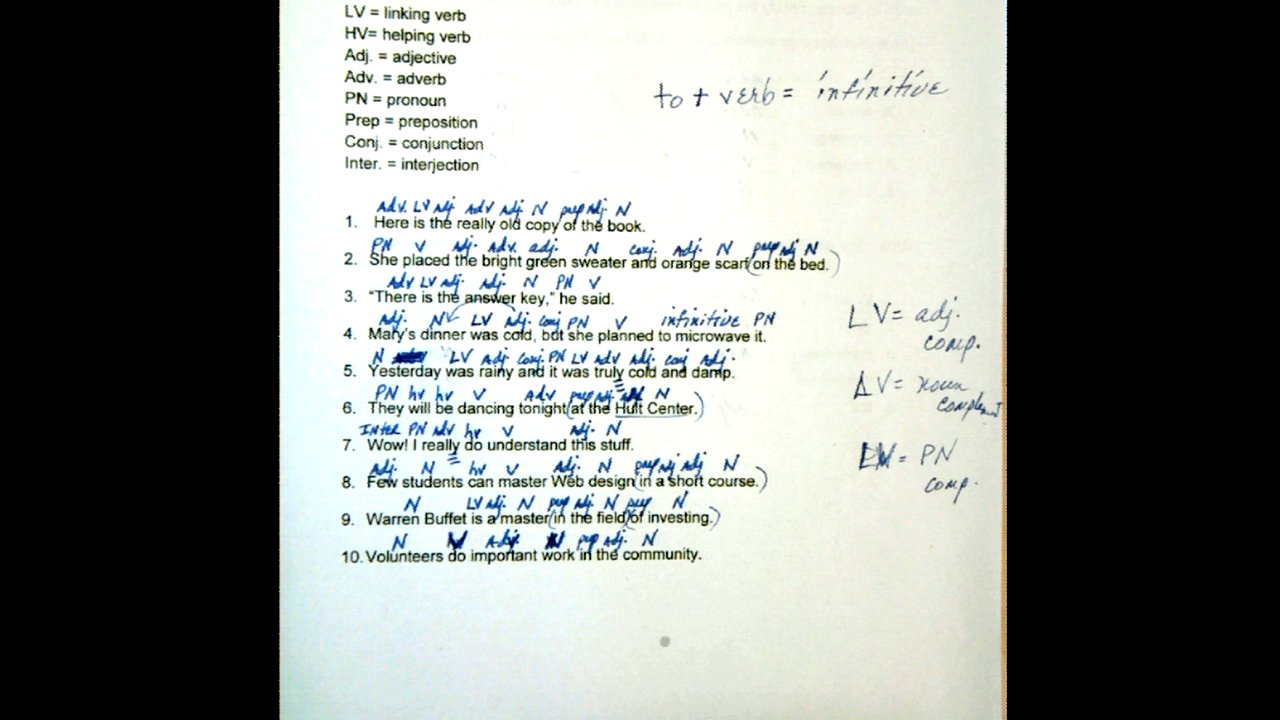 LV = linking verb
HV= helping verb
Adj. = adjective
Adv. = adverb
to + verb = infinitive
PN = pronoun
Prep = preposition
Conj. = conjunction
Inter. = interjection
Adv. LV Adj. Adv Adj. N prep Adj. N
1. Here is the really old copy of the book.
PN V Adj. Adv. adj. N conj. Adj. N prep Adj N
2. She placed the bright green sweater and orange scarf (on the bed.)
Adv LV Adj. Adj. N PN V
3. "There is the answer key," he said.
Adj. N LV Adj. conj PN V infinitive PN
4. Mary's dinner was cold, but she planned to microwave it.
LV = adj. comp.
N LV Adj. Conj. PN LV Adv Adj. conj Adj.
5. Yesterday was rainy and it was truly cold and damp.
LV = noun complement
PN hv hv V Adv prep Adj. N
6. They will be dancing tonight (at the Hult Center.)
INTER PN Adv hv V Adj. N
7. Wow! I really do understand this stuff.
LV = PN comp.
Adj. N hv V Adj. N prep Adj Adj N
8. Few students can master Web design (in a short course.)
N LV Adj. N prep Adj. N prep N
9. Warren Buffet is a master (in the field) (of investing.)
N V Adj. N prep Adj. N
10. Volunteers do important work in the community.